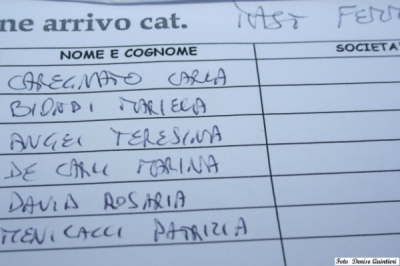 ne arrivo cat. MAST FERR
NOME E COGNOME SOCIETA'
CAREGNATO CARLA
BIONDI MARIELA
ANGEI TERESINA
DE CARLI MARINA
DAVID ROSARIA
MENICACCI PATRIZIA
Foto Denise Quintieri